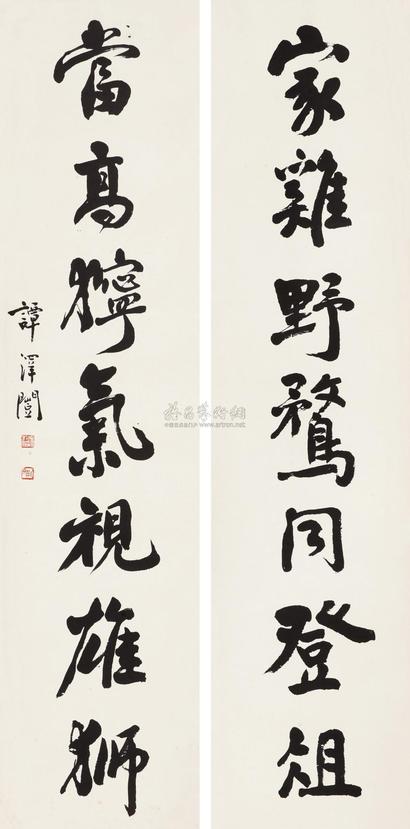 家雞野鶩同登俎
當高獰氣視雄獅
譚澤闓
雅昌藝術網
www.artron.net